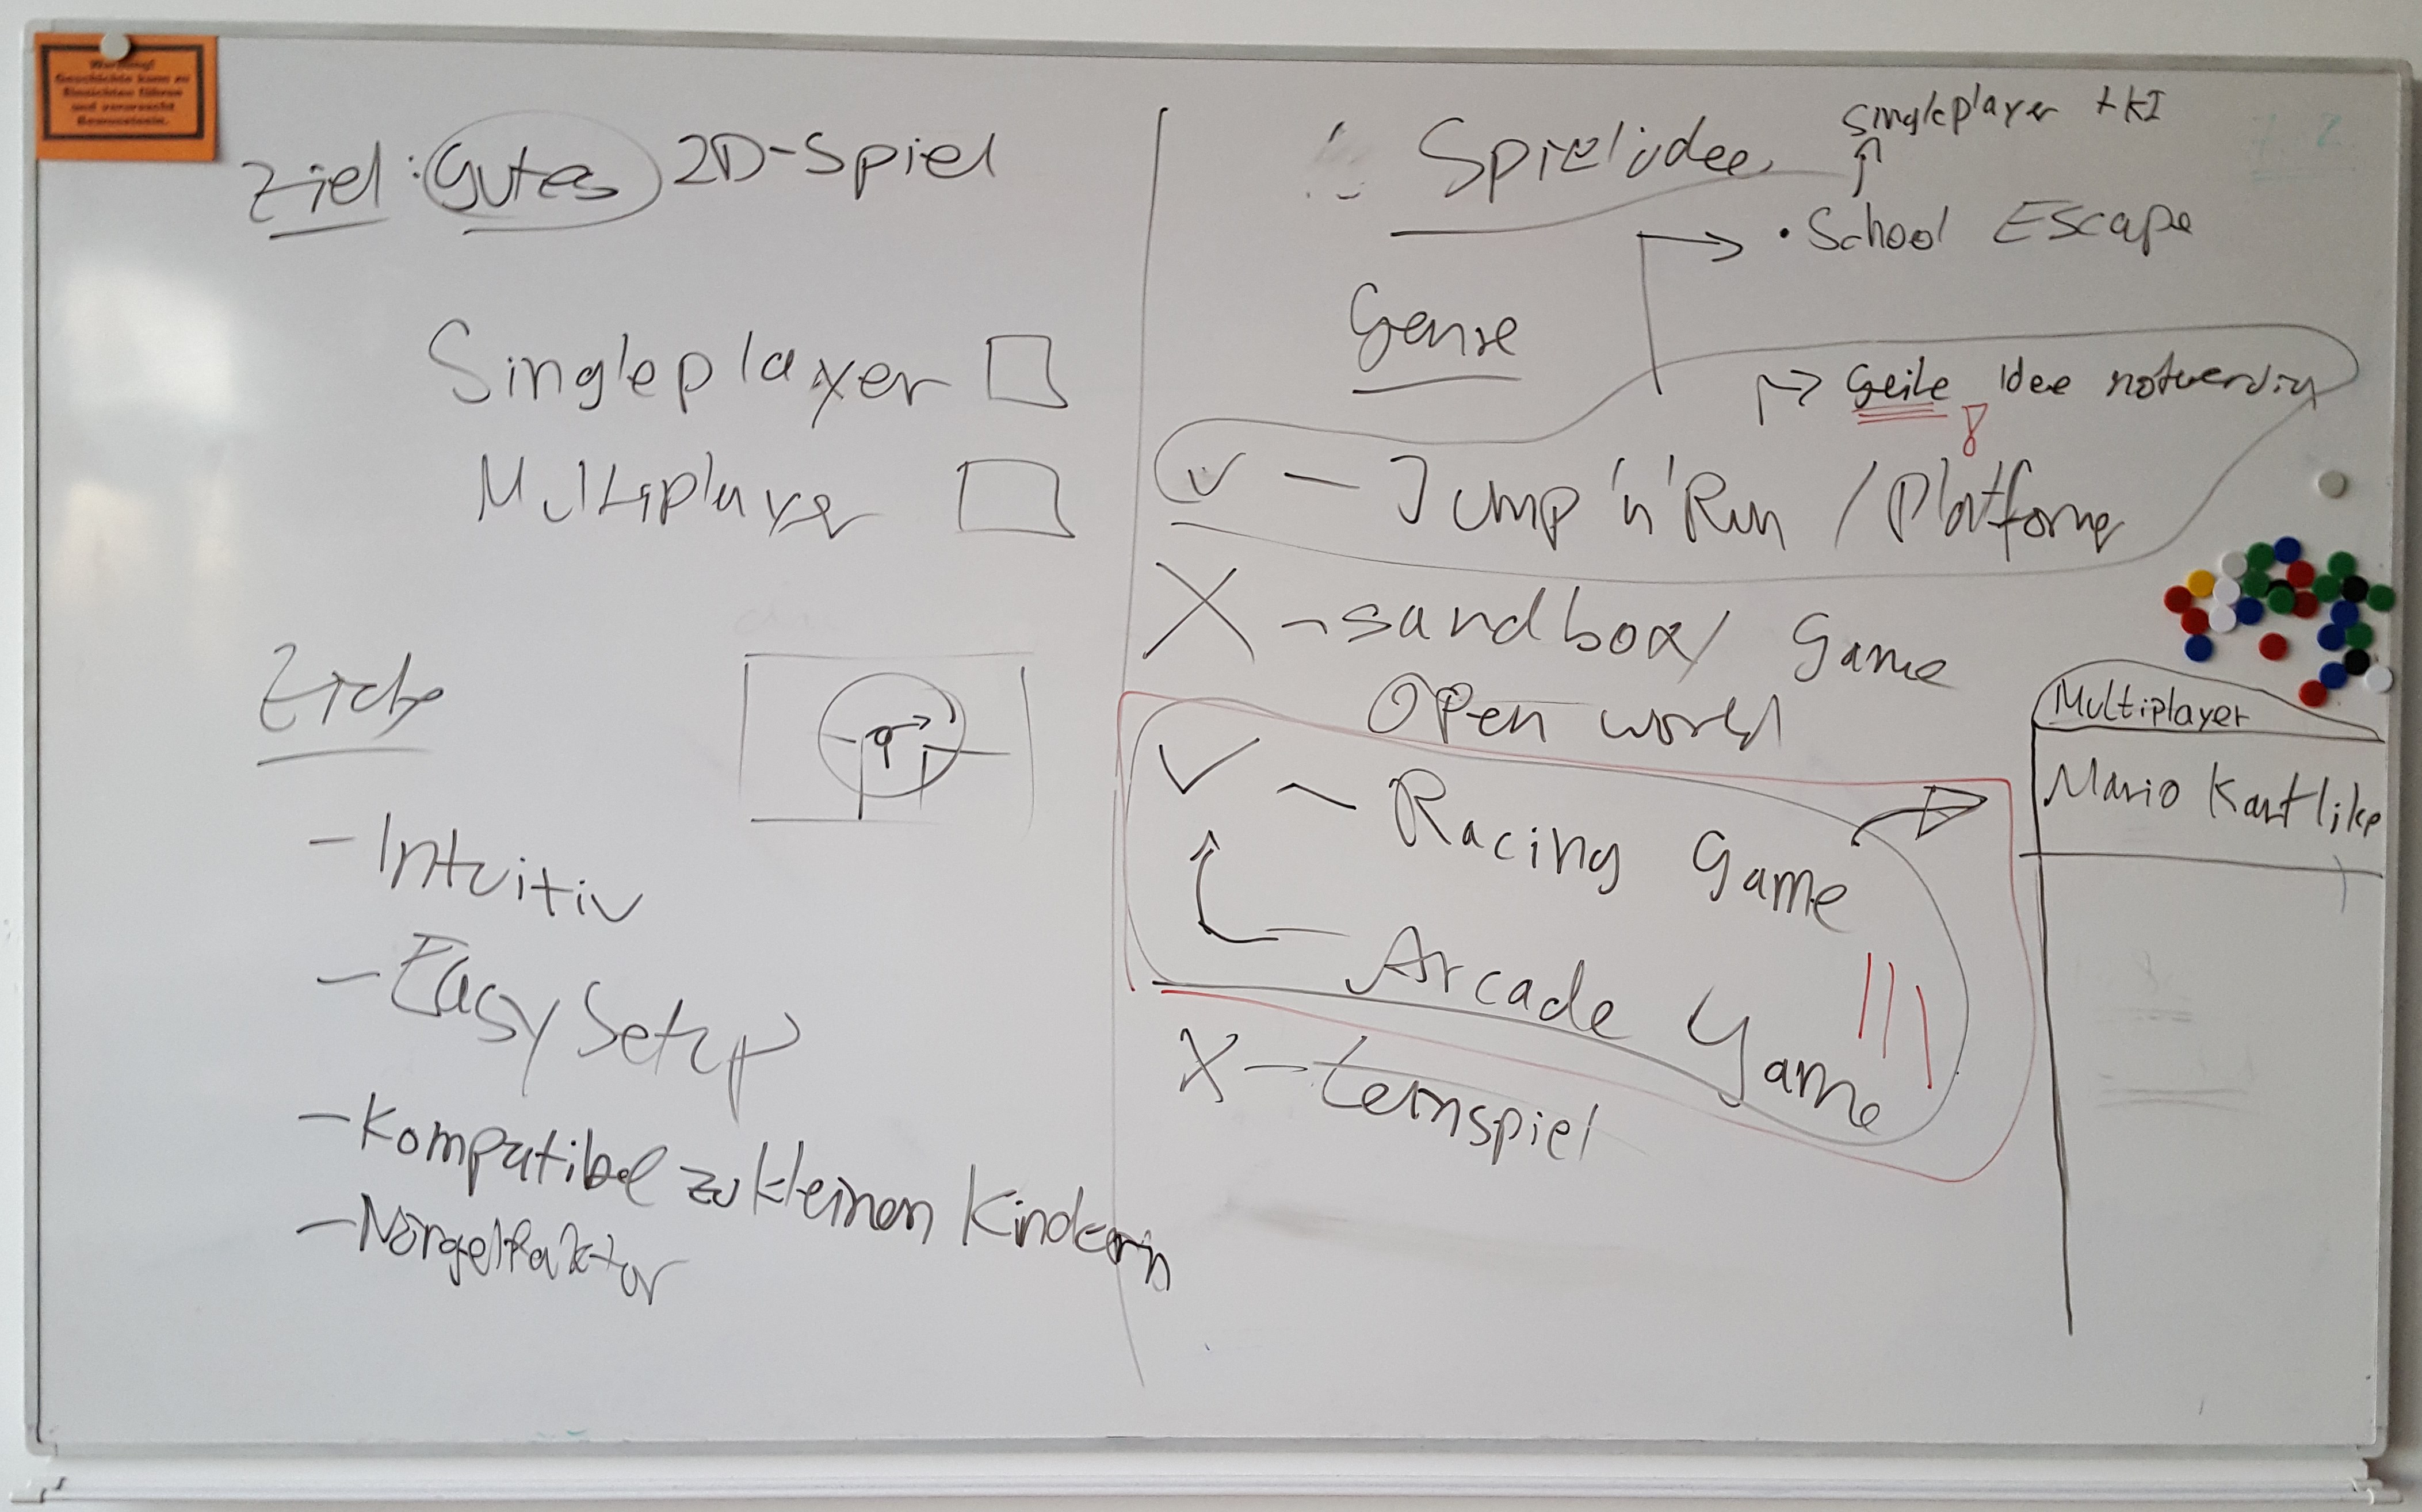 Warnung!
Geschichte kann zu
Einsichten führen
und verursacht
Bewusstsein.
Ziel: Gutes 2D-Spiel
Singleplayer
Multiplayer
Ziele
- Intuitiv
- Easy Setup
- Kompatibel zu kleinen Kindern
- Nörgelfaktor
Spielidee
Singleplayer + KI
• School Escape
Genre
→ Geile Idee notwendig
!
✓ - Jump 'n' Run / Platformer
X - sandbox / Game
Open world
✓ - Racing Game
- Arcade Game
X - Lernspiel
Multiplayer
Mario Kart like